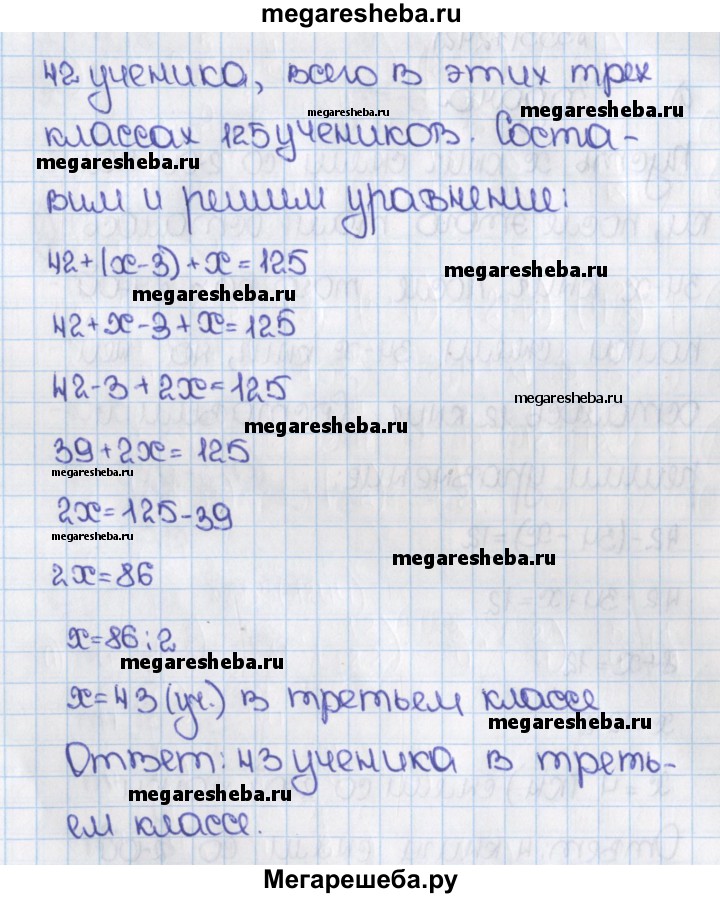 megaresheba.ru
42 ученика, всего в этих трех
megaresheba.ru
megaresheba.ru
классах 125 учеников. Соста-
megaresheba.ru
вим и решим уравнение:
42+(x-3)+x=125
megaresheba.ru
megaresheba.ru
42+x-3+x=125
42-3+2x=125
megaresheba.ru
megaresheba.ru
39+2x=125
megaresheba.ru
2x=125-39
megaresheba.ru
megaresheba.ru
2x=86
x=86:2
megaresheba.ru
x=43(уч.) в третьем классе
megaresheba.ru
Ответ: 43 ученика в треть-
megaresheba.ru
ем классе.
Мегарешеба.ру